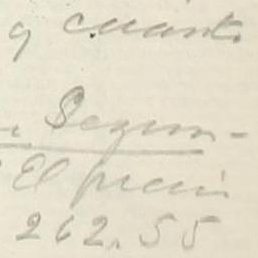 y cuant.
Segun-
El preci
262.55